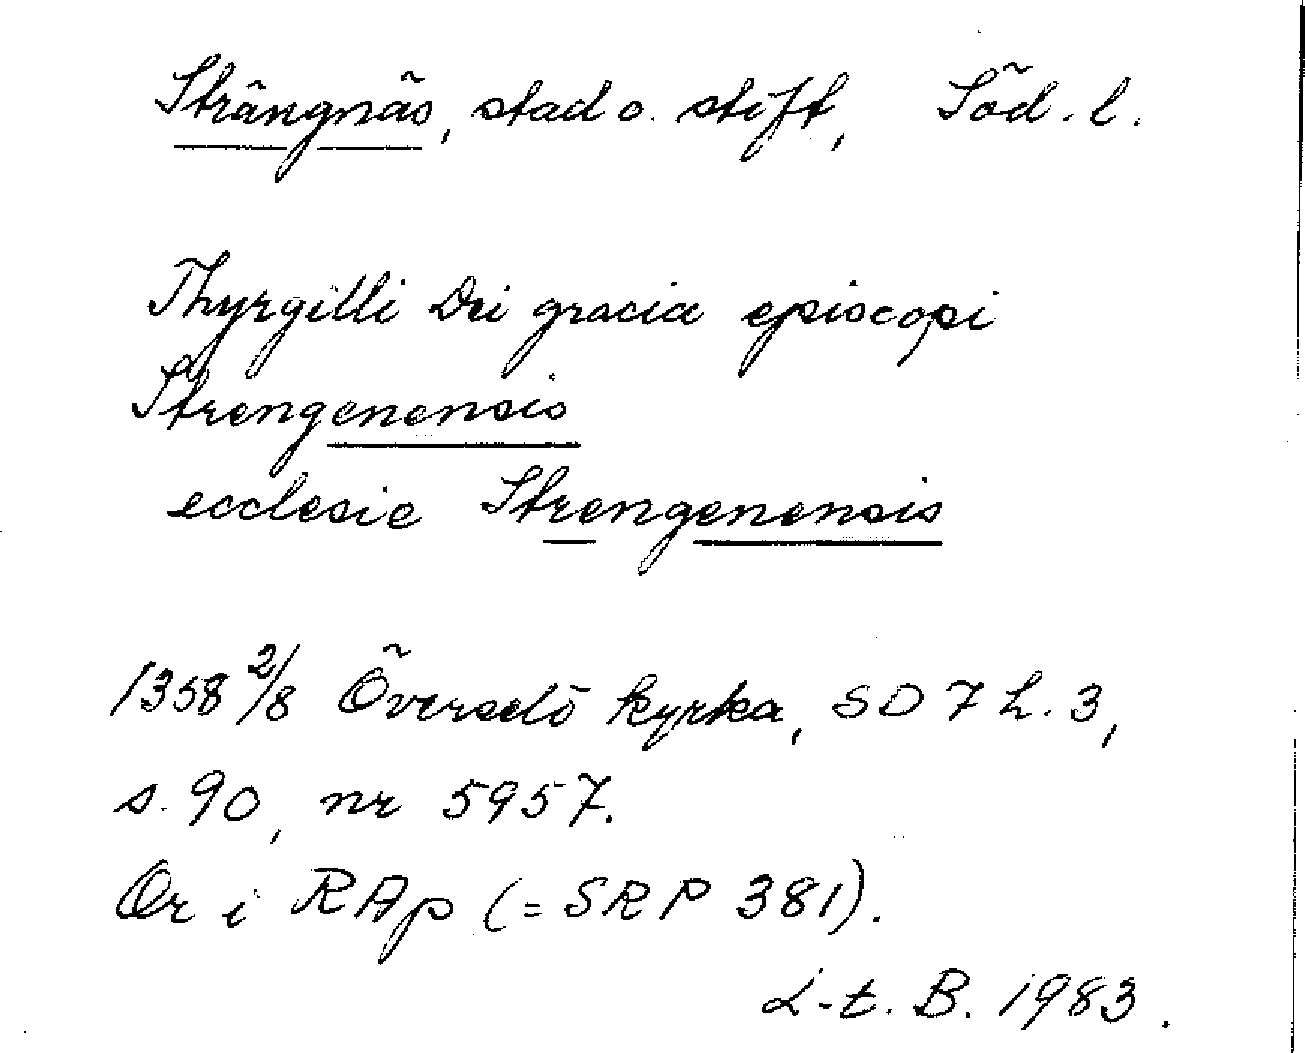 Strängnäs, stad o. stift, Söd. l.
Thyrgilli Dei gracia episcopi
Strengenensis
ecclesie Strengenensis
1358 2/8 Överselö kyrka, SD 7 h. 3,
s. 90, nr 5957.
Or i RAp (= SRP 381).
L-t. B. 1983.